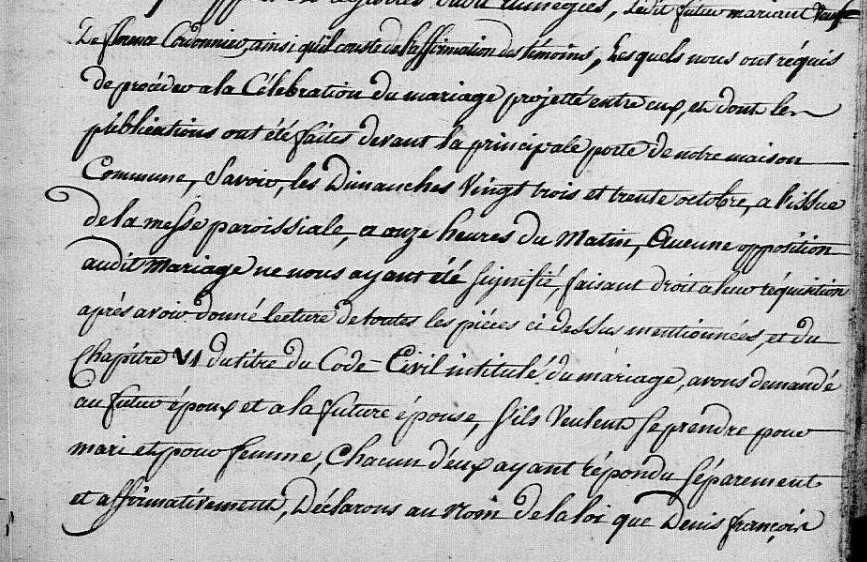 registres dudit Rumegies, Ledit futur mariant Veuf
De florence Cordonnier, ainsi qu'il conste de l'affirmation des témoins, Lesquels nous ont réquis
de procéder a la Célébration du mariage projetté entre eux, et dont les
publications ont été faites devant la principale porte de notre maison
Commune, Savoir, les Dimanches Vingt trois et trente octobre, a l'issue
de la messe paroissiale, a onze heures du Matin, Aucune opposition
audit mariage ne nous ayant été signifié, faisant droit a leur réquisition
aprés avoir donné lecture de toutes les piéces ci dessus mentionnées, et du
Chapitre VI du titre du Code Civil intitulé du mariage, avons demandé
au futur époux et a la future épouse, s'ils Veulent se prendre pour
mari et pour femme, Chacun d'eux ayant répondu séparement
et affirmativement, Déclarons au Nom de la loi que Denis françois